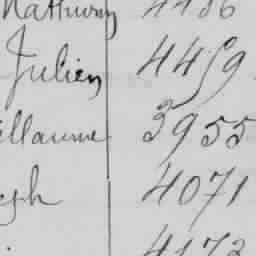 Mathurin 4486
Julien 4459
illaume 3955
eph 4071
4173